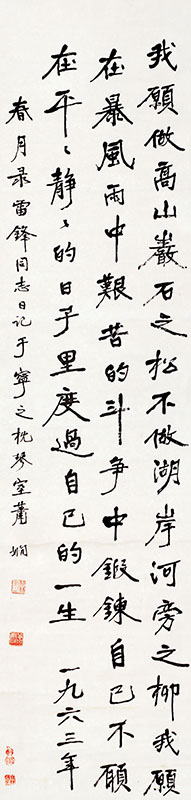 我願做高山巖石之松不做湖岸河旁之柳我願
在暴風雨中艱苦的斗爭中鍛鍊自己不願
在平、靜、的日子里度過自己的一生 一九六三年
春月录雷鋒同志日记于寧之枕琴室蕭嫻